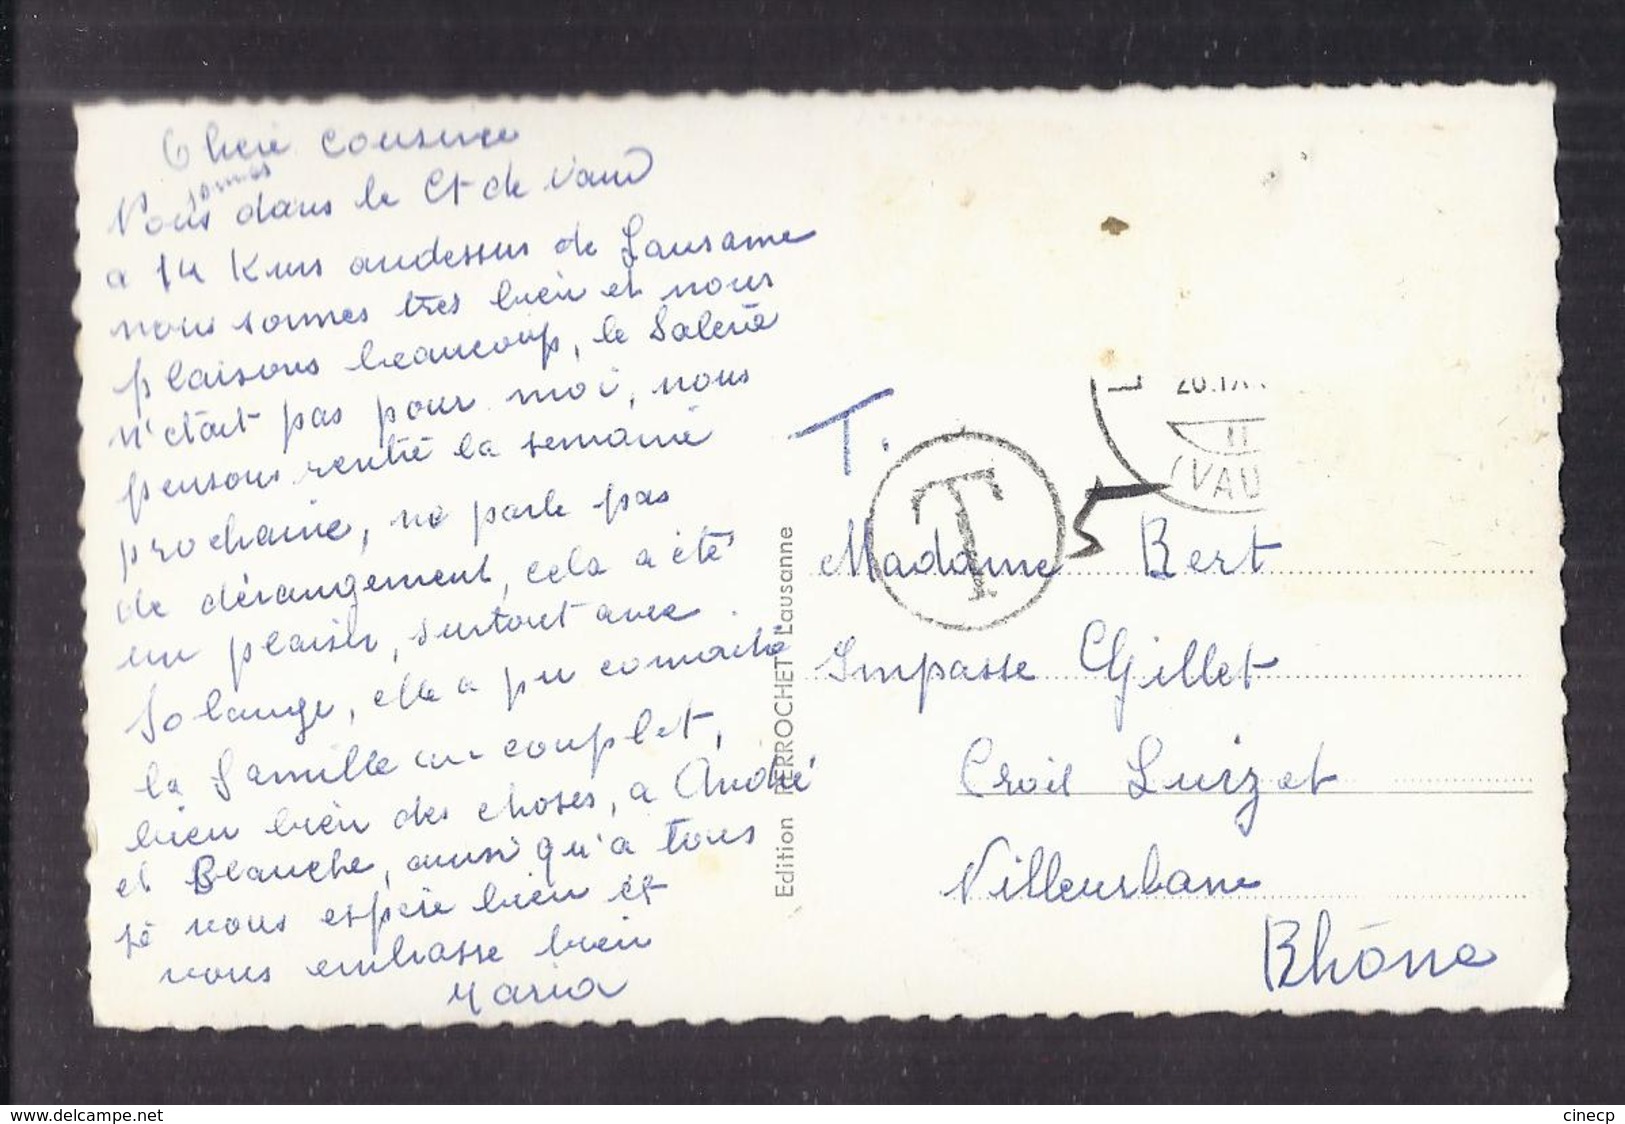 Cherè cousine
sommes
Nous dans le Ct de Vaud
a 14 Kms audessus de Lausanne
nous sommes trés bien et nous
plaisons beaucoup, le Salevè
n'était pas pour moi, nous
pensons rentré la semainè
prochainè, ne parle pas
de dérangement, cela a été
un plaisir, surtout avec
Solange, elle a pu connaitrè
la famille au complet,
bien bien des choses, a André
et Blanche, aussi qu'a tous
jè vous espérè bien et
vous embrasse bien
Maria
Edition PERROCHET Lausanne
T.
T
5
20.IX.
11
(VAU
Madame Bert
Impasse Gillet
Croix Luizet
Villeurbane
Rhône
www.delcampe.net
cinecp